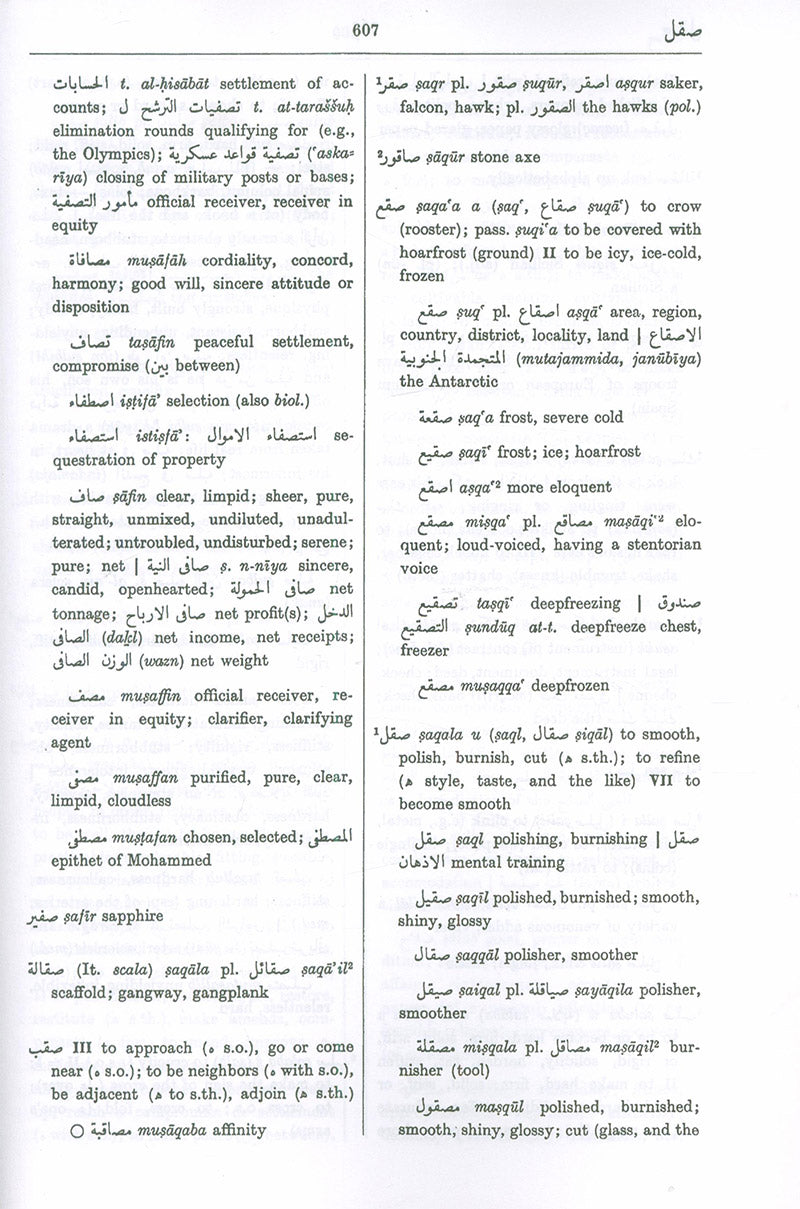 607
صقل
الحسابات t. al-ḥisābāt settlement of ac-
counts; تصفيات الترشح ل t. at-taraššuḥ
elimination rounds qualifying for (e.g.,
the Olympics); تصفية قواعد عسكرية (‘aska=
rīya) closing of military posts or bases;
مأمور التصفية official receiver, receiver in
equity
مصافاة muṣāfāh cordiality, concord,
harmony; good will, sincere attitude or
disposition
تصاف taṣāfin peaceful settlement,
compromise (بين between)
اصطفاء iṣṭifā’ selection (also biol.)
استصفاء istiṣfā’: استصفاء الاموال se-
questration of property
صاف ṣāfin clear, limpid; sheer, pure,
straight, unmixed, undiluted, unadul-
terated; untroubled, undisturbed; serene;
pure; net | صافى النية ṣ. n-nīya sincere,
candid, openhearted; صافى الحمولة net
tonnage; صافى الارباح net profit(s); الدخل
الصافى (daḵl) net income, net receipts;
الوزن الصافى (wazn) net weight
مصف muṣaffin official receiver, re-
ceiver in equity; clarifier, clarifying
agent
مصفى muṣaffan purified, pure, clear,
limpid, cloudless
مصطفى muṣṭafan chosen, selected; المصطفى
epithet of Mohammed
صفير ṣafīr sapphire
صقالة (It. scala) ṣaqāla pl. صقائل ṣaqā’il²
scaffold; gangway, gangplank
صقب III to approach (ه s.o.), go or come
near (ه s.o.); to be neighbors (ه with s.o.),
be adjacent (ه to s.th.), adjoin (ه s.th.)
○ مصاقبة muṣāqaba affinity
¹صقر ṣaqr pl. صقور ṣuqūr, اصقر aṣqur saker,
falcon, hawk; pl. الصقور the hawks (pol.)
²صاقور ṣāqūr stone axe
صقع ṣaqa‘a a (ṣaq‘, صقاع ṣuqā‘) to crow
(rooster); pass. ṣuqi‘a to be covered with
hoarfrost (ground) II to be icy, ice-cold,
frozen
صقع ṣuq‘ pl. اصقاع aṣqā‘ area, region,
country, district, locality, land | الاصقاع
المتجمدة الجنوبية (mutajammida, janūbīya)
the Antarctic
صقعة ṣaq‘a frost, severe cold
صقيع ṣaqī‘ frost; ice; hoarfrost
اصقع aṣqa‘² more eloquent
مصقع miṣqa‘ pl. مصاقع maṣāqi‘² elo-
quent; loud-voiced, having a stentorian
voice
تصقيع taṣqī‘ deepfreezing | صندوق
التصقيع ṣundūq at-t. deepfreeze chest,
freezer
مصقع muṣaqqa‘ deepfrozen
¹صقل ṣaqala u (ṣaql, صقال ṣiqāl) to smooth,
polish, burnish, cut (ه s.th.); to refine
(ه style, taste, and the like) VII to
become smooth
صقل ṣaql polishing, burnishing | صقل
الاذهان mental training
صقيل ṣaqīl polished, burnished; smooth,
shiny, glossy
صقال ṣaqqāl polisher, smoother
صيقل ṣaiqal pl. صياقلة ṣayāqila polisher,
smoother
مصقلة miṣqala pl. مصاقل maṣāqil² bur-
nisher (tool)
مصقول maṣqūl polished, burnished;
smooth, shiny, glossy; cut (glass, and the